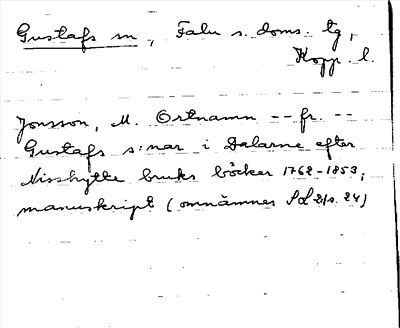 Gustafs sn, Falu s. doms. tg,
Kopp. l.
Jonsson, M. Ortnamn -- fr. --
Gustafs s:nar i Dalarne efter
Nisshytte bruks böcker 1762-1853;
manuskript (omnämnes SoL 21 s. 24)